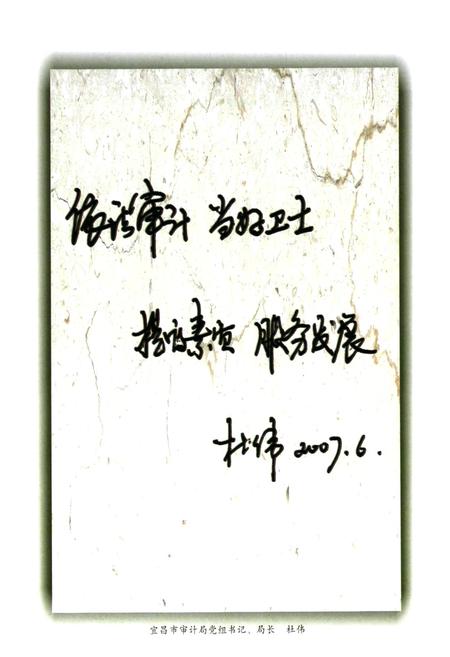 依法审计 当好卫士
提高素质 服务发展
杜伟 2007.6.
宜昌市审计局党组书记、局长 杜伟